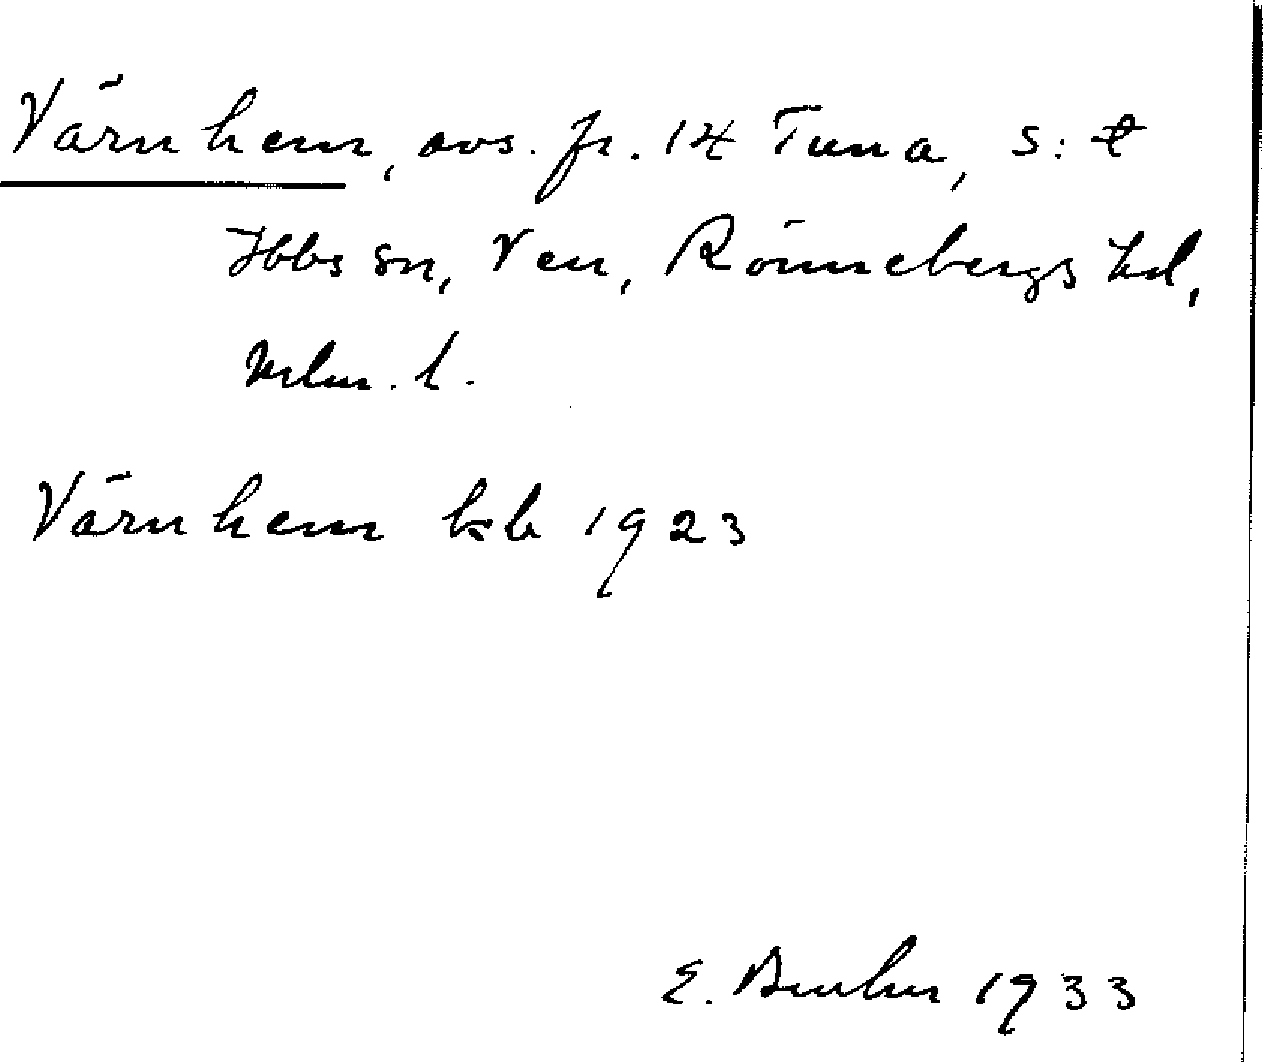 Värnhem, avs. fr. 14 Tuna, S:t
Ibbs sn, Ven, Rönnebergs hd,
Mlm. l.
Värnhem kb 1923
E. 1933